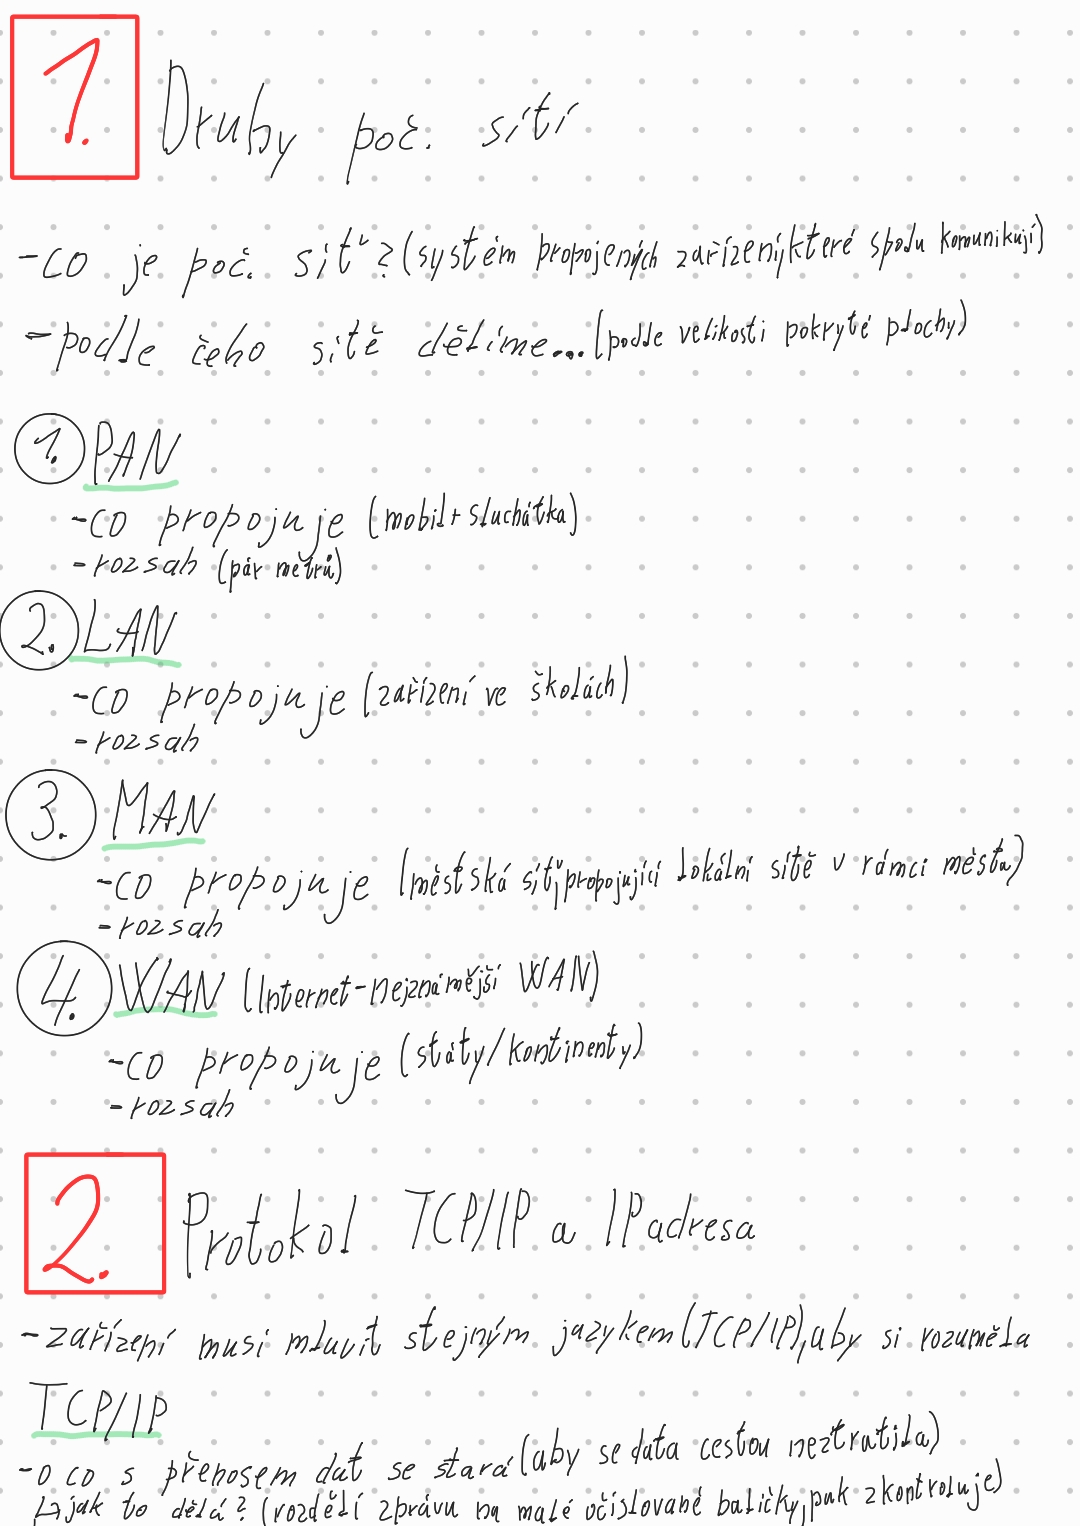 1. Druhy poč. sítí
-co je poč. síť? (systém propojených zařízení, které spolu komunikují)
-podle čeho sítě dělíme... (podle velikosti pokryté plochy)
1. PAN
-co propojuje (mobil + sluchátka)
-rozsah (pár metrů)
2. LAN
-co propojuje (zařízení ve školách)
-rozsah
3. MAN
-co propojuje (městská síť, propojující lokální sítě v rámci města)
-rozsah
4. WAN (Internet-nejznámější WAN)
-co propojuje (státy/kontinenty)
-rozsah
2. Protokol TCP/IP a IP adresa
-zařízení musí mluvit stejným jazykem (TCP/IP), aby si rozuměla
TCP/IP
-o co s přenosem dat se stará (aby se data cestou neztratila)
↳jak to dělá? (rozdělí zprávu na malé očíslované balíčky, pak zkontroluje)